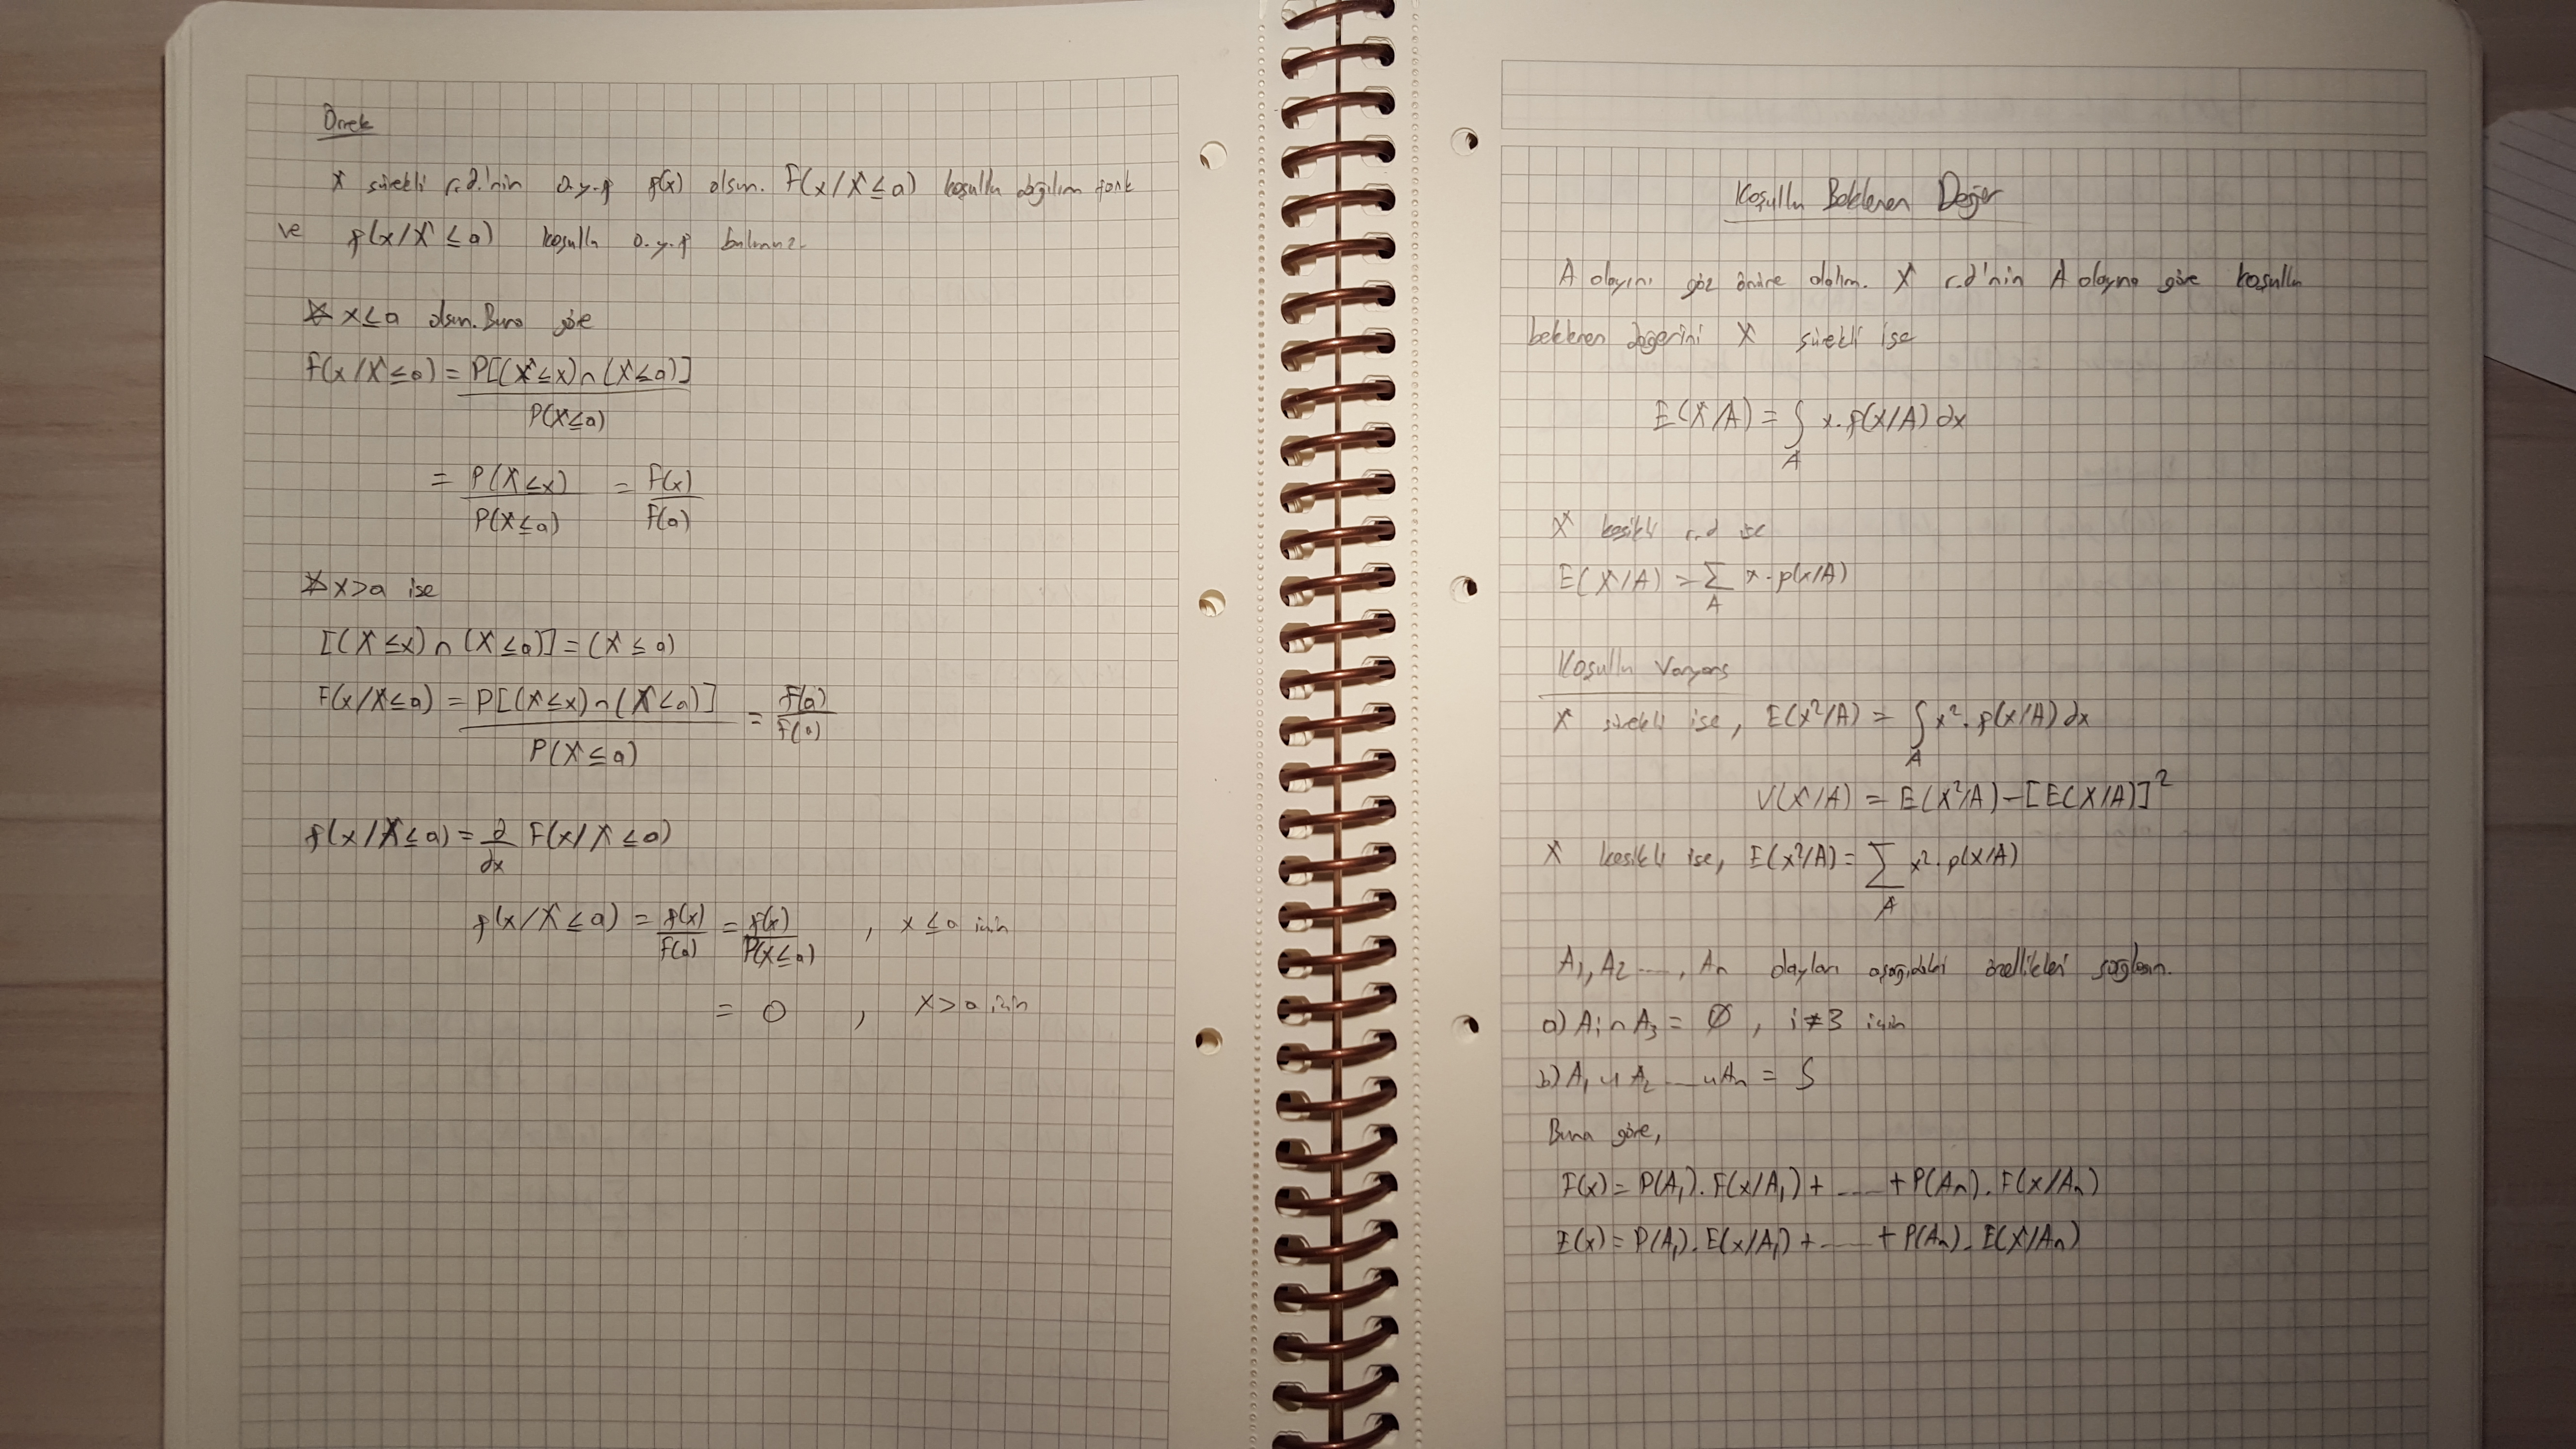 Örnek
X sürekli r.d.'nin o.y.f f(x) olsun. F(x/X≤a) koşullu dağılım fonk
ve f(x/X≤a) koşullu o.y.f bulunuz.
* x≤a olsun. Buna göre
F(x/X≤a) = P[(X≤x)∩(X≤a)] / P(X≤a)
= P(X≤x) / P(X≤a) = F(x) / F(a)
* x>a ise
[(X≤x)∩(X≤a)] = (X≤a)
F(x/X≤a) = P[(X≤x)∩(X≤a)] / P(X≤a) = F(a) / F(a)
f(x/X≤a) = d/dx F(x/X≤a)
f(x/X≤a) = f(x)/F(a) = f(x)/P(X≤a) , x≤a için
= 0 , x>a için
Koşullu Beklenen Değer
A olayını göz önüne alalım. X r.d'nin A olayına göre koşullu
beklenen değerini X sürekli ise
E(X/A) = ∫_A x.f(x/A) dx
X kesikli r.d ise
E(X/A) = Σ_A x.p(x/A)
Koşullu Varyans
X sürekli ise, E(x²/A) = ∫_A x².f(x/A) dx
V(X/A) = E(X²/A) - [E(X/A)]²
X kesikli ise, E(x²/A) = Σ_A x².p(x/A)
A₁, A₂ ...., Aₙ olayları aşağıdaki özellikleri sağlasın.
a) Aᵢ∩A₃ = Ø , i≠3 için
b) A₁∪A₂ ....∪Aₙ = S
Buna göre,
F(x) = P(A₁).F(x/A₁) + ..... + P(Aₙ).F(x/Aₙ)
E(x) = P(A₁).E(x/A₁) + ..... + P(Aₙ).E(X/Aₙ)